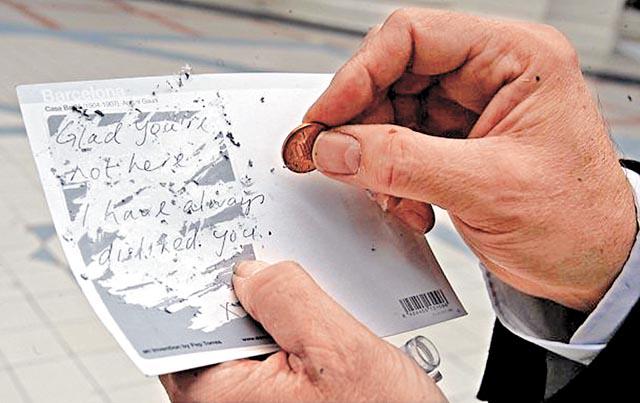 Barcelona
Casa Ba (1904-1907), Gaudí
Glad you're
not here
I have always
disliked you.
x
an invention by Pep Torres
www.